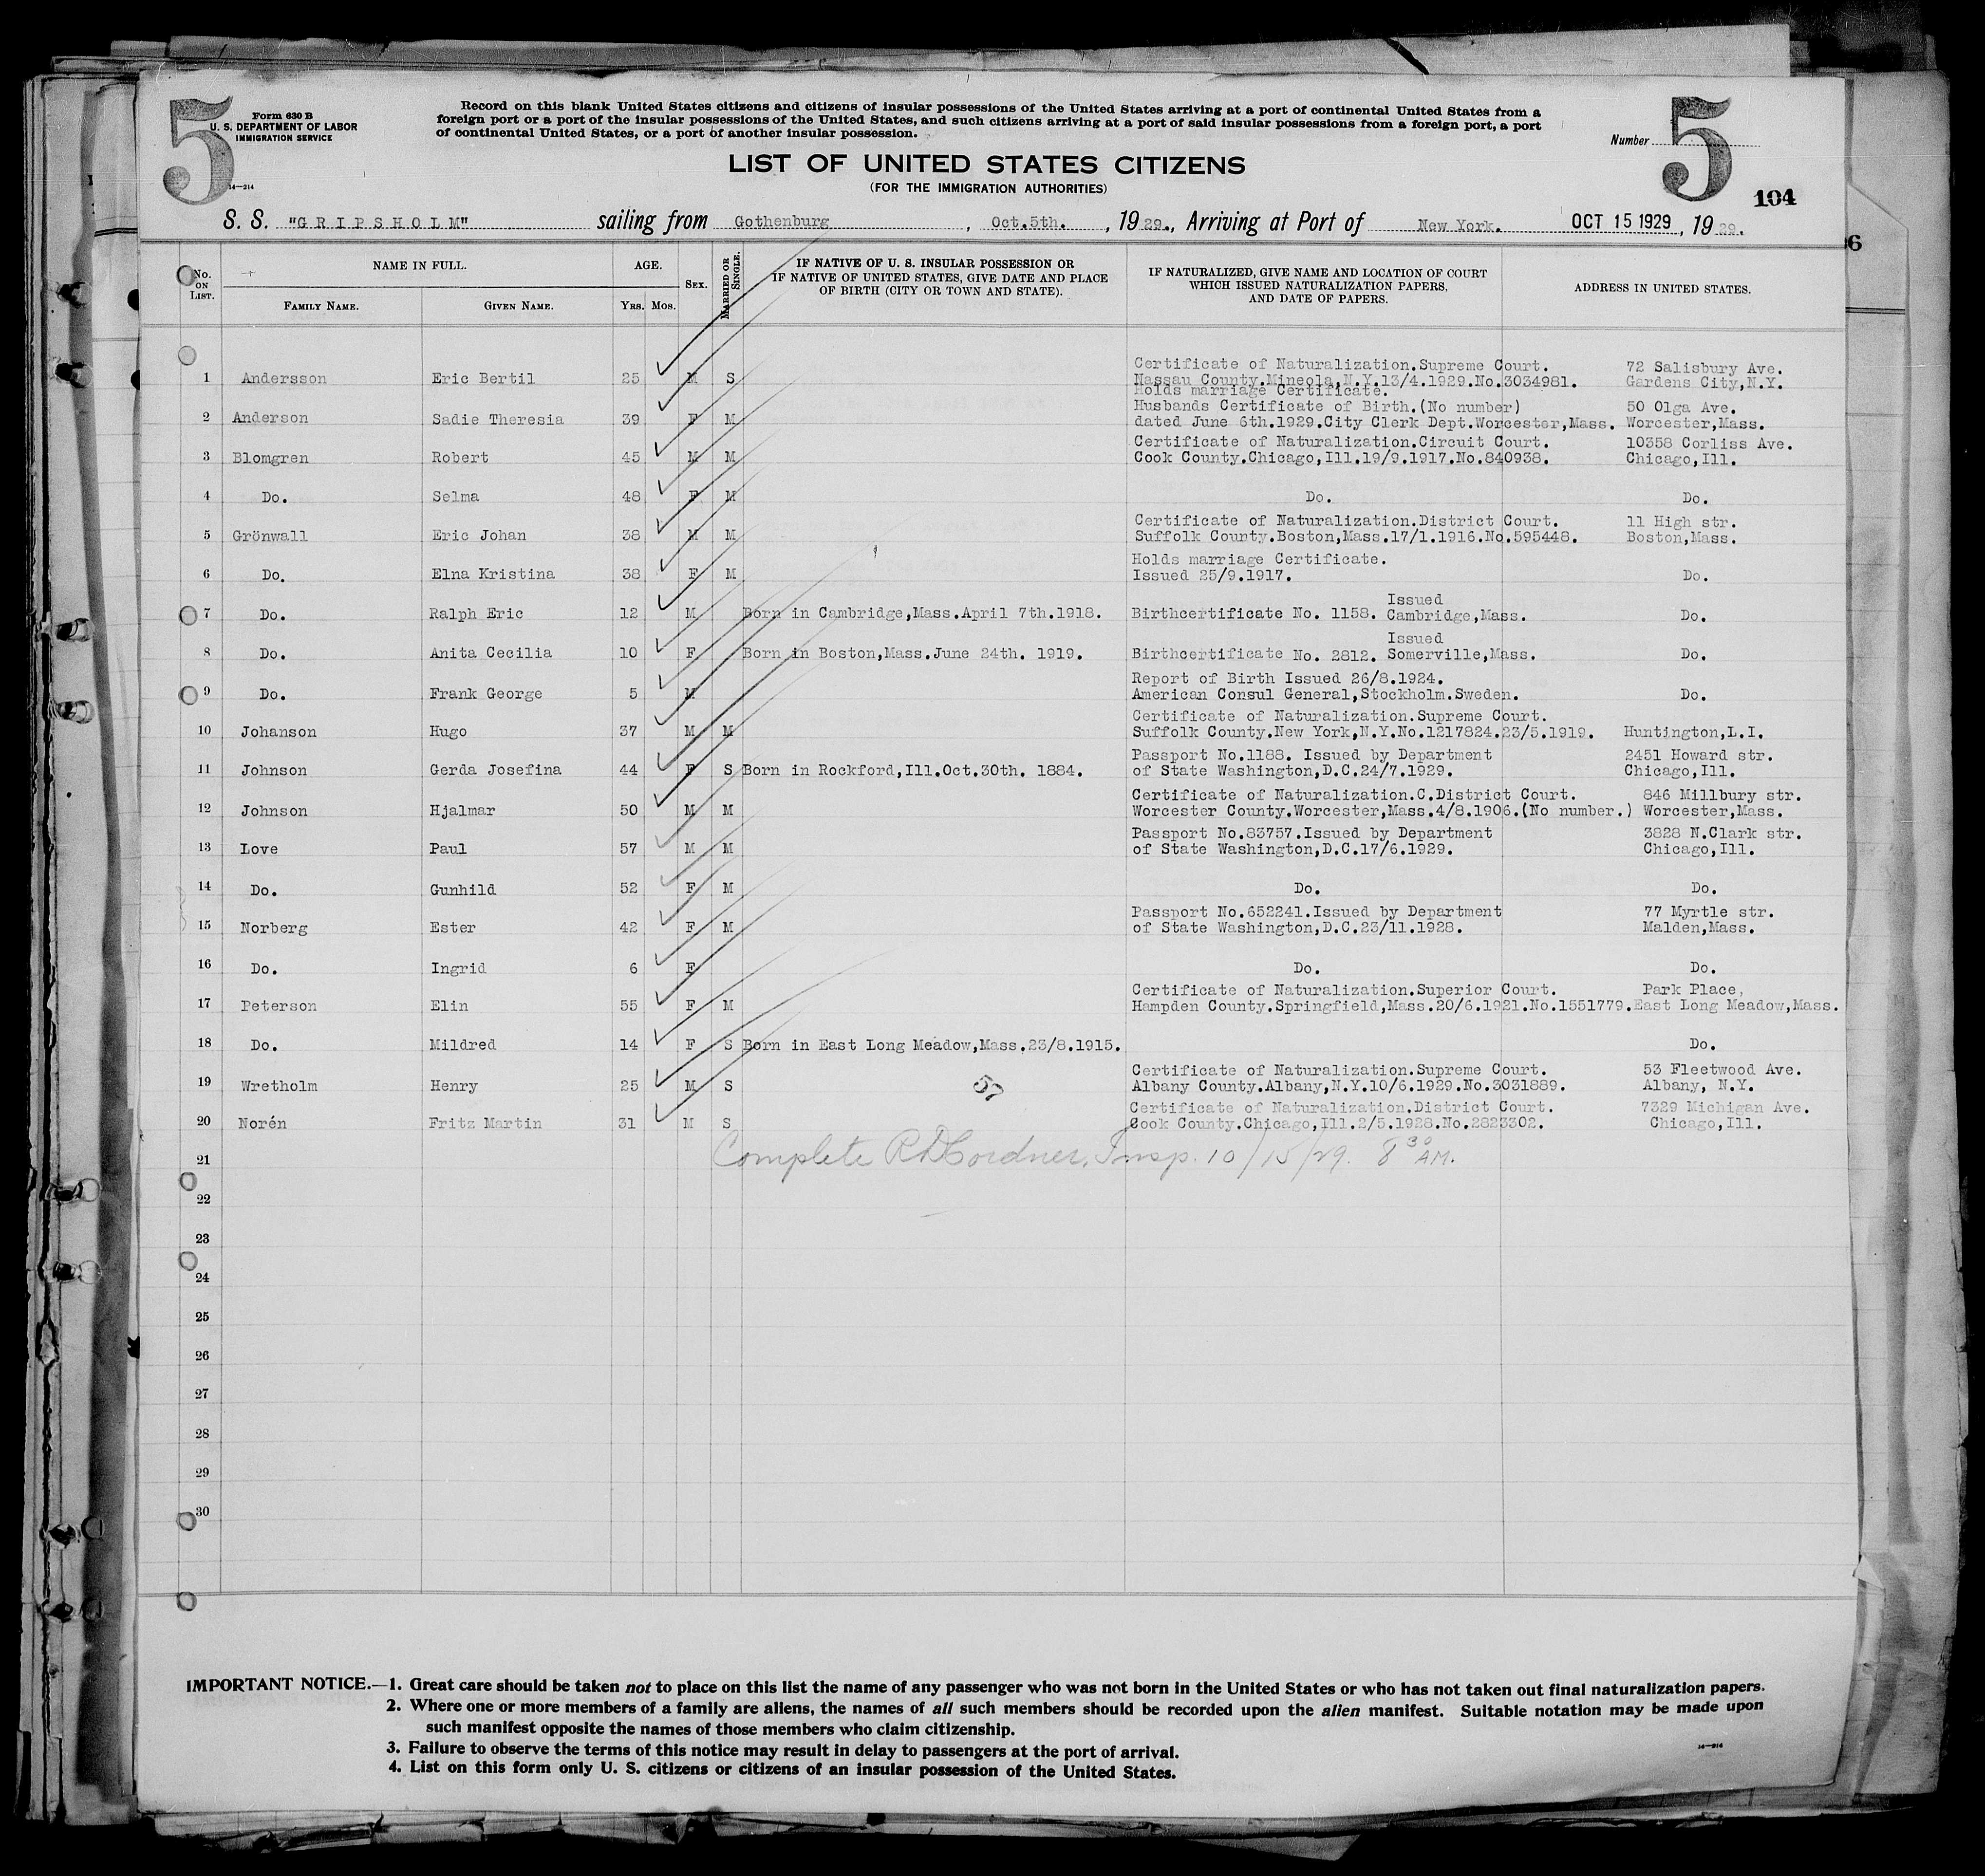 5
Form 630 B
U. S. DEPARTMENT OF LABOR
IMMIGRATION SERVICE
14—214
Record on this blank United States citizens and citizens of insular possessions of the United States arriving at a port of continental United States from a
foreign port or a port of the insular possessions of the United States, and such citizens arriving at a port of said insular possessions from a foreign port, a port
of continental United States, or a port of another insular possession.
Number 5
LIST OF UNITED STATES CITIZENS
(FOR THE IMMIGRATION AUTHORITIES)
104
S. S. "GRIPSHOLM" sailing from Gothenburg, Oct.5th., 1929., Arriving at Port of New York. OCT 15 1929, 1929.
No. ON LIST. NAME IN FULL. AGE. SEX. MARRIED OR SINGLE. IF NATIVE OF U. S. INSULAR POSSESSION OR IF NATIVE OF UNITED STATES, GIVE DATE AND PLACE OF BIRTH (CITY OR TOWN AND STATE). IF NATURALIZED, GIVE NAME AND LOCATION OF COURT WHICH ISSUED NATURALIZATION PAPERS, AND DATE OF PAPERS. ADDRESS IN UNITED STATES.
FAMILY NAME. GIVEN NAME. YRS. MOS.
Certificate of Naturalization.Supreme Court. 72 Salisbury Ave.
1 Andersson Eric Bertil 25 M S Nassau County.Mineola,N.Y.13/4.1929.No.3034981. Gardens City,N.Y.
Holds marriage Certificate.
Husbands Certificate of Birth.(No number) 50 Olga Ave.
2 Anderson Sadie Theresia 39 F M dated June 6th.1929.City Clerk Dept.Worcester,Mass. Worcester,Mass.
Certificate of Naturalization.Circuit Court. 10358 Corliss Ave.
3 Blomgren Robert 45 M M Cook County.Chicago,Ill.19/9.1917.No.840938. Chicago,Ill.
4 Do. Selma 48 F M Do. Do.
Certificate of Naturalization.District Court. 11 High str.
5 Grönwall Eric Johan 38 M M Suffolk County.Boston,Mass.17/1.1916.No.595448. Boston,Mass.
Holds marriage Certificate.
6 Do. Elna Kristina 38 F M Issued 25/9.1917. Do.
Issued
7 Do. Ralph Eric 12 M Born in Cambridge,Mass.April 7th.1918. Birthcertificate No. 1158. Cambridge,Mass. Do.
Issued
8 Do. Anita Cecilia 10 F Born in Boston,Mass.June 24th. 1919. Birthcertificate No. 2812. Somerville,Mass. Do.
Report of Birth Issued 26/8.1924.
9 Do. Frank George 5 M American Consul General,Stockholm.Sweden. Do.
Certificate of Naturalization.Supreme Court.
10 Johanson Hugo 37 M M Suffolk County.New York,N.Y.No.1217824.23/5.1919. Huntington,L.I.
Passport No.1188. Issued by Department 2451 Howard str.
11 Johnson Gerda Josefina 44 F S Born in Rockford,Ill.Oct.30th. 1884. of State Washington,D.C.24/7.1929. Chicago,Ill.
Certificate of Naturalization.C.District Court. 846 Millbury str.
12 Johnson Hjalmar 50 M M Worcester County.Worcester,Mass.4/8.1906.(No number.) Worcester,Mass.
Passport No.83757.Issued by Department 3828 N.Clark str.
13 Love Paul 57 M M of State Washington,D.C.17/6.1929. Chicago,Ill.
14 Do. Gunhild 52 F M Do. Do.
Passport No.652241.Issued by Department 77 Myrtle str.
15 Norberg Ester 42 F M of State Washington,D.C.23/11.1928. Malden,Mass.
16 Do. Ingrid 6 F Do. Do.
Certificate of Naturalization.Superior Court. Park Place,
17 Peterson Elin 55 F M Hampden County.Springfield,Mass.20/6.1921.No.1551779.East Long Meadow,Mass.
18 Do. Mildred 14 F S Born in East Long Meadow,Mass.23/8.1915. Do.
Certificate of Naturalization.Supreme Court. 53 Fleetwood Ave.
19 Wretholm Henry 25 M S Albany County.Albany,N.Y.10/6.1929.No.3031889. Albany, N.Y.
Certificate of Naturalization.District Court. 7329 Michigan Ave.
20 Norén Fritz Martin 31 M S Cook County.Chicago,Ill.2/5.1928.No.2823302. Chicago,Ill.
21 Complete Insp. 10/15/29. 8 30 AM.
22
23
24
25
26
27
28
29
30
IMPORTANT NOTICE.—1. Great care should be taken not to place on this list the name of any passenger who was not born in the United States or who has not taken out final naturalization papers.
2. Where one or more members of a family are aliens, the names of all such members should be recorded upon the alien manifest. Suitable notation may be made upon
such manifest opposite the names of those members who claim citizenship.
3. Failure to observe the terms of this notice may result in delay to passengers at the port of arrival.
4. List on this form only U. S. citizens or citizens of an insular possession of the United States.
14—214